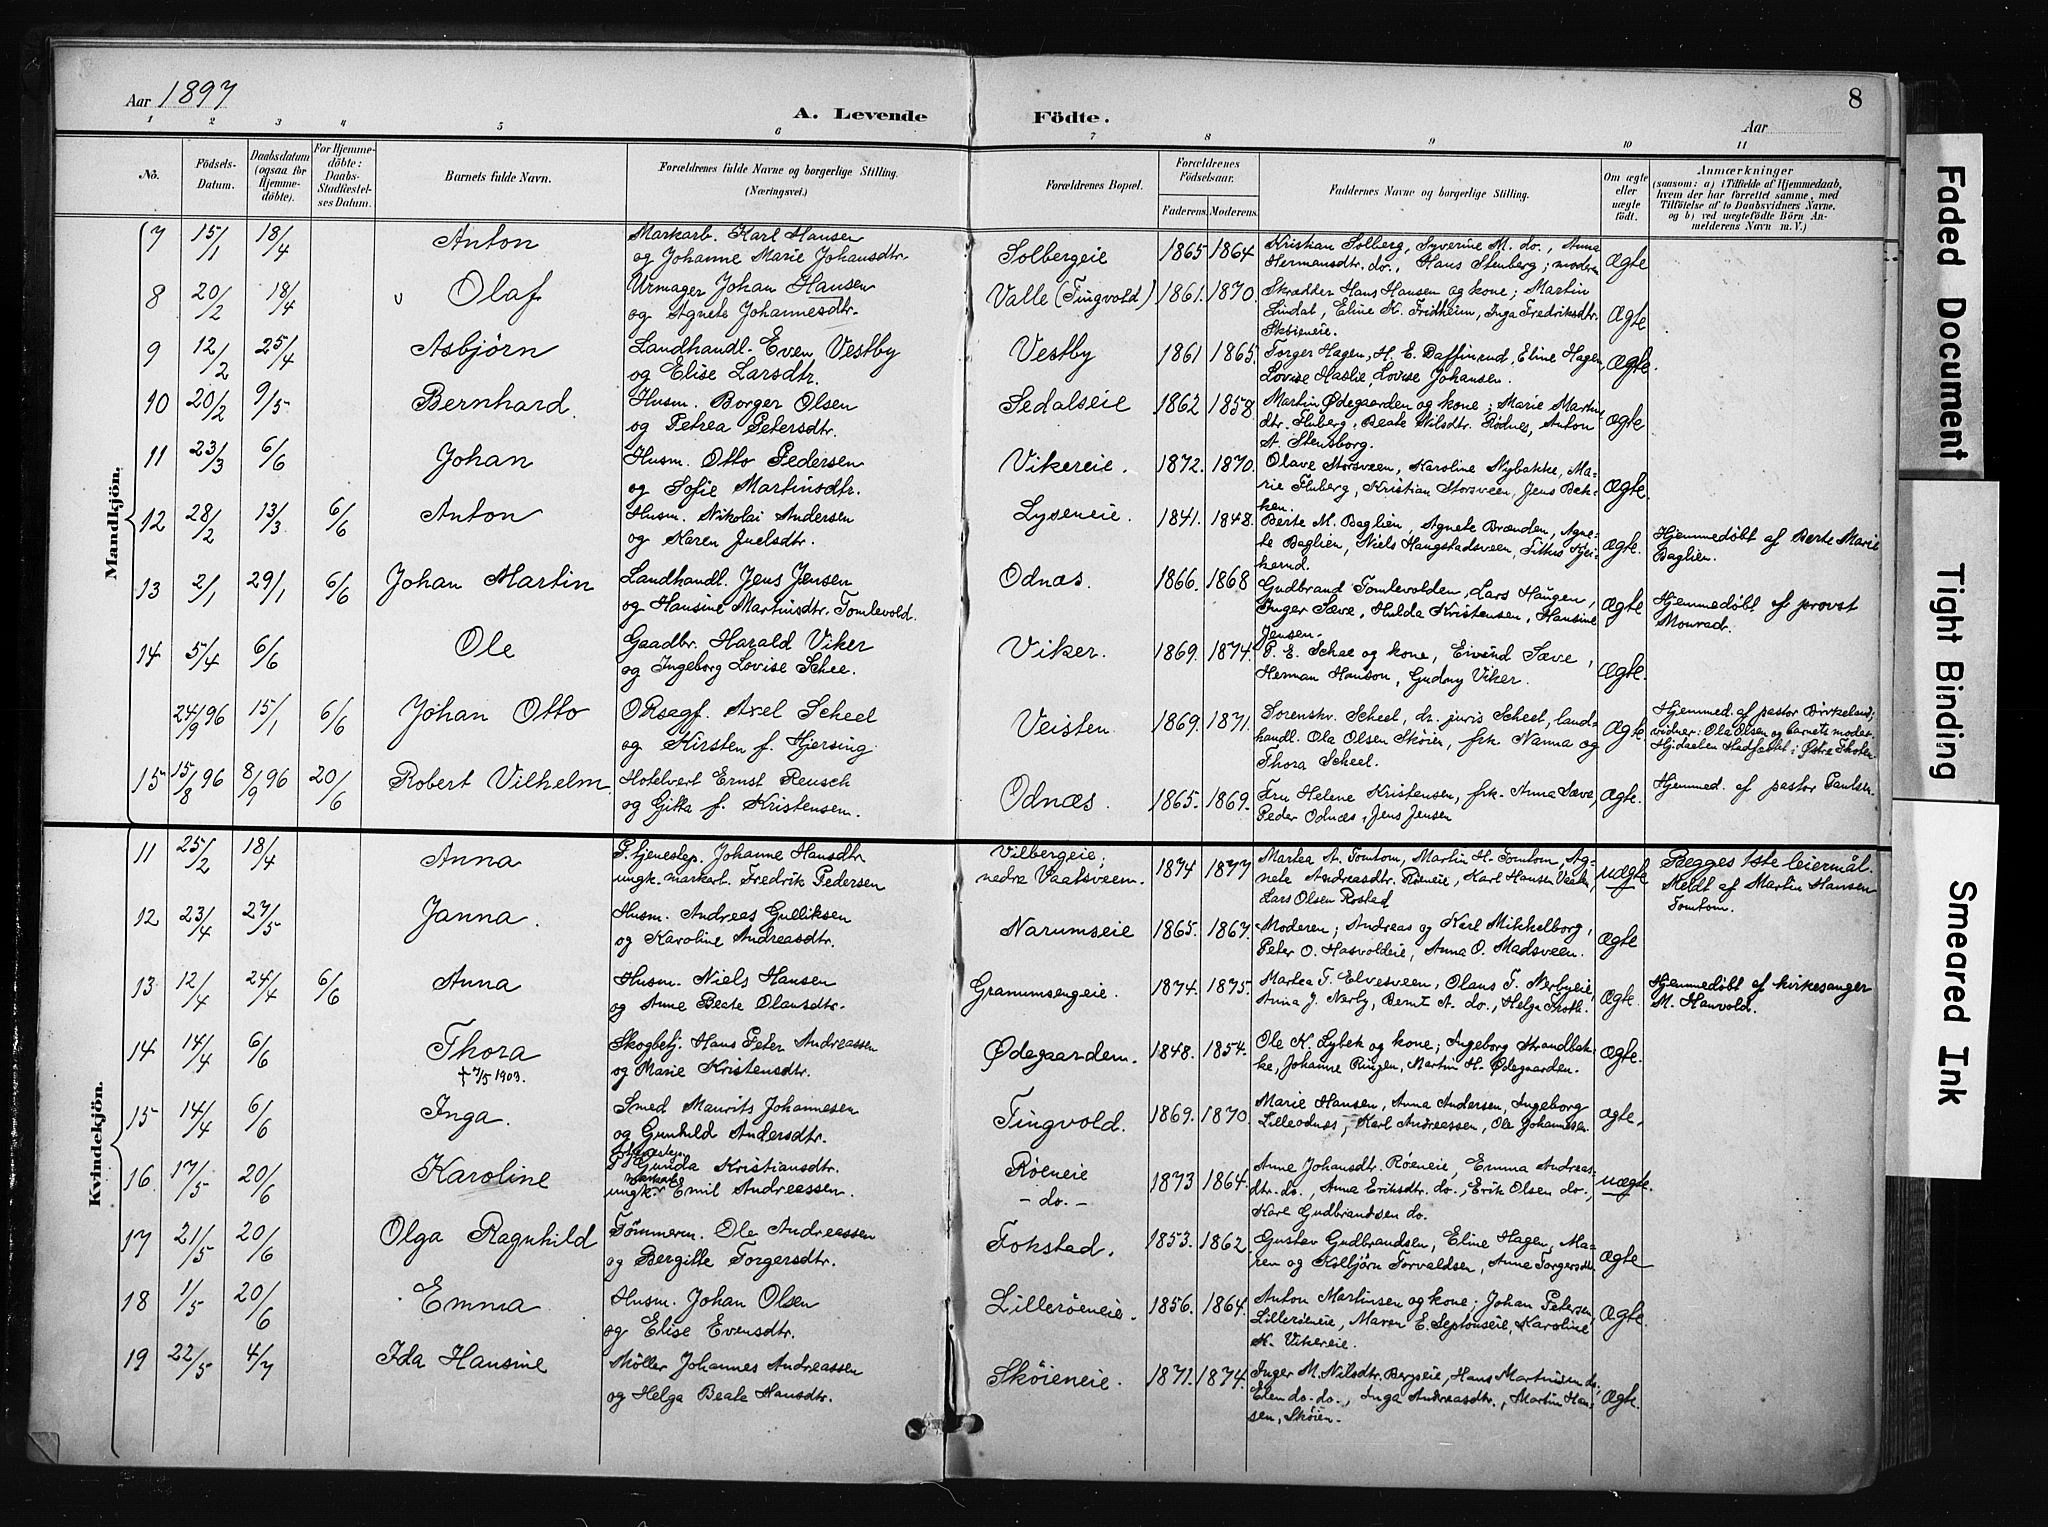 Aar 1897
A. Levende Födte.
8
Aar
1 2 3 4 5 6 7 8 9 10 11
No.
Födsels-Datum.
Daabsdatum (ogsaa for Hjemme-døbte).
For Hjemme-døbte: Daabs-Stadfæstel-ses Datum.
Barnets fulde Navn.
Forældrenes fulde Navne og borgerlige Stilling. (Næringsvei.)
Forældrenes Bopæl.
Forældrenes Födselsaar.
Faderens. Moderens.
Faddernes Navne og borgerlige Stilling.
Om ægte eller uægte født.
Anmærkninger
(saasom: a) i Tilfælde af Hjemmedaab, hvem der har forrettet samme, med Tilföielse af to Daabsvidners Navne, og b) ved uægtefödte Börn An-melderens Navn m. V.)
Mandkjön.
7 15/1 18/4 Anton Markarb. Karl Hansen Solbergeie 1865 1864 Kristian Solberg, Syverine M. do., Anna Ægte
og Johanne Marie Johansdtr. Hermansdtr. do., Hans Stenberg; moderen
8 20/2 18/4 Olaf Urmager Johan Hansen Valle (Tingvold) 1861. 1870. Skrædder Hans Hansen og kone; Martin Ægte
og Agnete Johannesdtr. Lindal, Eline K. Fridheim, Inga Fredriksdtr.
Sköieneie.
9 12/2 25/4 Asbjörn Landhandl. Even Vestby Vestby 1861 1865. Torger Hagen, H. E. Daffinrud, Eline Hagen, Ægte.
og Elise Larsdtr. Lovise Haslie, Lovise Johansen.
10 20/2 9/5 Bernhard. Husm. Borger Olsen Sedalseie 1862 1858 Martin Ødegaarden og kone; Marie Martins Ægte
og Petrea Petersdtr. dtr. Fluberg, Beate Nilsdtr. Rödnes, Anton
A. Stensborg.
11 23/3 6/6 Johan Husm. Otto Pedersen Vikereie. 1872. 1870. Olave Storsveen, Karoline Nybakke, Ma- Ægte.
og Sofie Martinsdtr. rie Fluberg, Kristian Storsveen, Jens Bek-
ken.
12 28/2 13/3 6/6 Anton Husm. Nikolai Andersen Lyseneie. 1841. 1848. Berte M. Baglien, Agnete Brænden, Agne- Ægte. Hjemmedøbt af Berte Marie
og Karen Juelsdtr. te Baglien, Niels Haugstadsveen, Baglien.
13 2/1 29/1 6/6 Johan Martin Landhandl. Jens Jensen Odnæs. 1866. 1868 Gudbrand Tomlevolden, Lars Haugen, Ægte Hjemmedøbt af provst
og Hansine Martinsdtr. Tomlevold. Inger Sæve, Hulda Kristensen, Hansine Monrad.
Jensen.
14 5/4 6/6 Ole Gaadbr. Harald Viker Viker. 1869. 1874. P. E. Schee og kone, Eivind Sæve, Ægte.
og Ingeborg Lovise Schee. Herman Hanson, Gudny Viker.
24/9 96 15/1 6/6 Johan Otto ORsagf. Axel Scheel Veisten. 1869. 1871. Sorenskr. Scheel, dr. juris Scheel, land- Ægte. Hjemmed. af pastor Birkeland;
og Kirsten f. Hjersing. handl. Ola Olsen Skøien, frk Nanna og vidner: Ola Olsen og barnets moder.
Thora Scheel. Hj.daaben stadfæstet i Østre Thoten
15 15/8 96 8/9 96 20/6 Robert Vilhelm. Hotelvert Ernst Reusch Odnæs. 1865. 1869. Fru Helene Kristensen, frk. Anna Sæve, Ægte. Hjemmed. af pastor Paulsen.
og Gitta f. Kristensen. Peder Odnæs, Jens Jensen
Kvindekjön.
11 25/2 18/4 Anna P. tjenestep. Johanne Hansdtr Vilbergeie; 1874 1877 Martea A. Tomtom, Martin H. Tomtom, Ag- uægte Begges 1ste leiermål.
ungk. markarb. Fredrik Pedersen nedre Vaatsveen. nete Andreasdtr. Röeneie, Karl Hansen Meldt af Martin Hansen
Lars Olsen Rostad Tomtom.
12 23/4 27/5 Janna. Husm. Andreas Gulliksen Narumseie 1865. 1867. Moderen; Andreas og Karl Mikkelborg, Ægte
og Karoline Andreasdtr. Peter O. Hasvoldeie, Anna O. Madsveen.
13 12/4 24/4 6/6 Anna Husm. Niels Hansen Granumsengeie. 1874. 1875. Martea T. Elvesveen, Olaus T. Nerbyeie, Ægte. Hjemmedøbt af kirkesanger
og Anne Beate Olausdtr. Anna J. Nerby, Bernt A. do., Helga M. Hanvold.
14 14/4 6/6 Thora Skogbetj. Hans Peter Andreassen Ødegaarden. 1848. 1854. Ole K. Lybek og kone; Ingeborg Strandbak- Ægte.
† 7/5 1903. og Marie Kristensdtr. ke, Johanne Ringen, Martin H. Ødegaarden.
15 14/4 6/6 Inga. Smed Maurits Johannesen Tingvold. 1869. 1870 Marie Hansen, Anna Andersen, Ingeborg ægte.
og Gunhild Andersdtr. Lilleodnæs, Karl Andreassen, Ole Johannesen.
16 17/5 20/6 Karoline P. Gunda Kristiansdtr. Röeneie 1873 1864. Anne Johansdtr. Röeneie, Emma Andreas- uægte.
ungk. Emil Andreassen. -do.- dtr. do., Anna Eriksdtr. do., Erik Olsen do.,
Karl Gudbrandsen do.
17 21/5 20/6 Olga Ragnhild Tömmerm. Ole Andreassen Fokstad. 1853. 1862. Gustav Gudbrandsen, Eline Hagen, Ma- Ægte
og Bergitte Torgersdtr. ren og Kolbjörn Torvaldsen, Anne Torgersdtr.
18 1/5 20/6 Emma Husm. Johan Olsen Lilleröeneie. 1856. 1864. Anton Martinsen og kone; Johan Petersen, Ægte.
og Elise Evensdtr. Lilleröeneie, Maren E. Septonseie, Karoline
K. Vikereie.
19 22/5 4/7 Ida Hansine Møller Johannes Andreassen Skøieneie. 1871. 1874. Inger M. Nilsdtr. Bergseie, Hans Martinsen do., Ægte.
og Helga Beate Hansdtr. Elen do. do., Inga Andreasdtr., Martin Han-
sen, Skøien.
Faded Document
Tight Binding
Smeared Ink